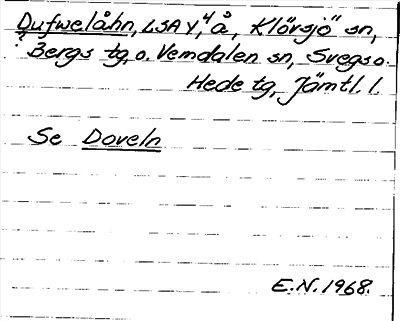 Dufwelåhn, LSA Y, 4 å, Klövsjö sn,
Bergs tg, o. Vemdalen sn, Svegs o.
Hede tg, Jämtl. l.
Se Doveln
E.N. 1968.